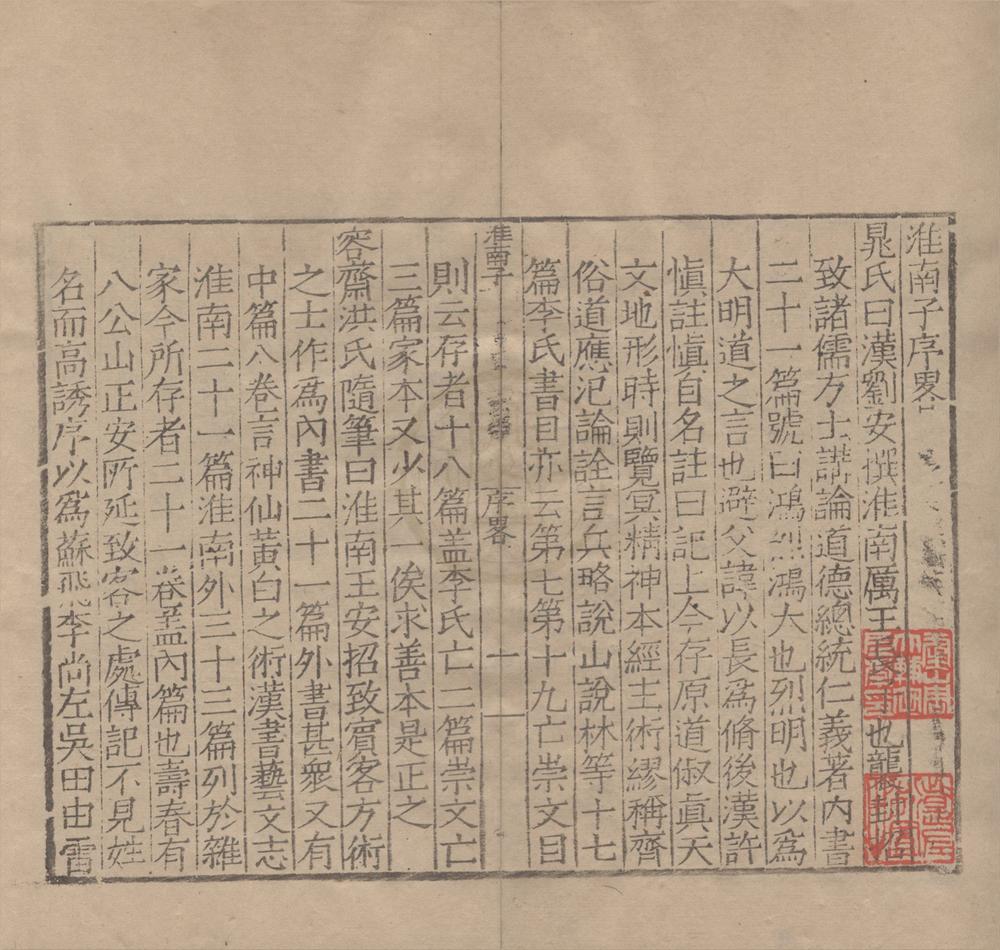 淮南子序畧
晁氏曰漢劉安撰淮南厲王長子也襲封招
致諸儒方士講論道德總統仁義著內書
二十一篇號曰鴻烈鴻大也烈明也以爲
大明道之言也避父諱以長爲脩後漢許
慎註慎自名註曰記上今存原道俶真天
文地形時則覽冥精神本經主術繆稱齊
俗道應氾論詮言兵略說山說林等十七
篇李氏書目亦云第七第十九亡崇文目
淮南子
序畧
十一
則云存者十八篇盖李氏亡二篇崇文亡
三篇家本又少其一俟求善本是正之
容齋洪氏隨筆曰淮南王安招致賓客方術
之士作爲內書二十一篇外書甚衆又有
中篇八卷言神仙黃白之術漢書藝文志
淮南二十一篇淮南外三十三篇列於雜
家今所存者二十一卷盖內篇也壽春有
八公山正安所延致客之處傳記不見姓
名而高誘序以爲蘇飛李尚左吳田由雷